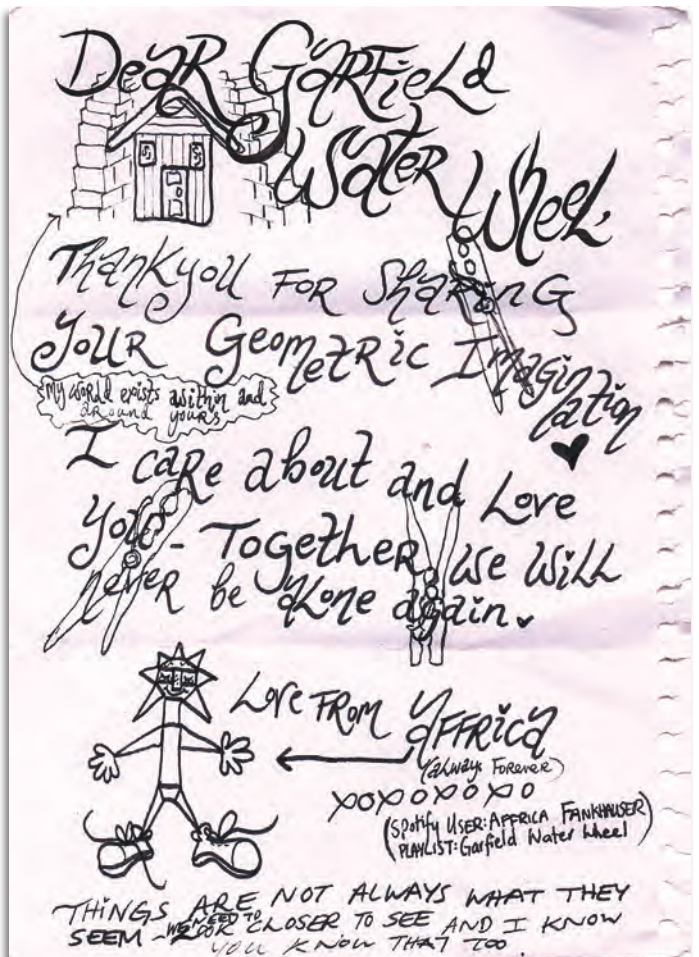 Dear Garfield
Water Wheel.
Thankyou For Sharing
Your Geometric Imagin
ation
My world exists within and
around yours
I care about and Love
you - Together we will
never be alone again.
Love From Affrica
(always Forever)
xoxoxoxo
(Spotify USER: AFFRICA FANKHAUSER)
PLAYLIST: Garfield Water Wheel
THINGS ARE NOT ALWAYS WHAT THEY
SEEM - WE NEED TO LOOK CLOSER TO SEE AND I KNOW
YOU KNOW THAT TOO.